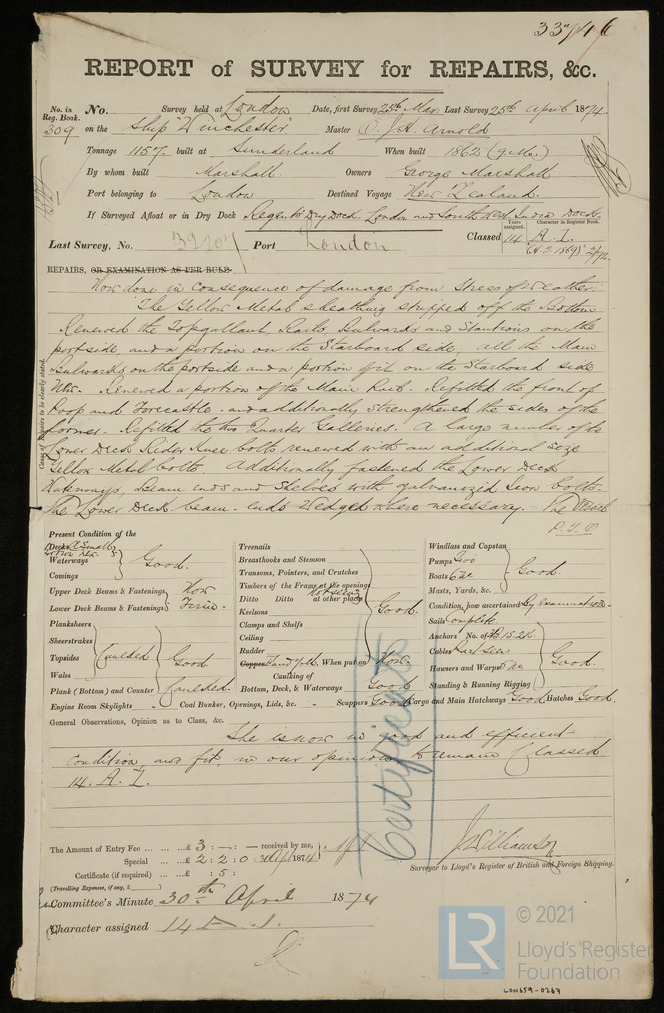 REPORT of SURVEY for REPAIRS, &c.
No. in Reg. Book. 309
No. Survey held at London Date, first Survey 25th Mar. Last Survey 25th April 1874.
on the Ship "Winchester" Master J.A. Arnold
Tonnage 1157. built at Sunderland When built 1862
By whom built Marshall. Owners George Marshall
Port belonging to London Destined Voyage New Zealand.
If Surveyed Afloat or in Dry Dock Regents Dry Dock London and South West India Docks.
Years assigned. Character in Register Book.
Last Survey, No. Port London Classed 14 A.1.
REPAIRS, OR EXAMINATION AS PER RULE.
Now done in consequence of damage from stress of Weather.
The Yellow Metal sheathing stripped off the Bottom
Renewed the Topgallant, Bulwards and Stantions on the
portside, and a portion on the Starboard side, all the Main
Bulwards on the portside and a portion of it on the Starboard side
Renewed a portion of the Main Rail. Refitted the front of
Poop and Forecastle. and additionally strengthened the sides of the
former. Refitted the two Quarter Galleries. A large number of the
Lower Deck Rider Knee bolts renewed with an additional size
Yellow Metal bolts. Additionally fastened the Lower Deck
Waterways, Beam ends and Shelves with galvanized Iron bolts.
the Lower Deck beam ends Wedged where necessary. The
P.T.O
Cause of Repairs to be clearly stated.
Present Condition of the
Decks
Waterways Good.
Comings
Upper Deck Beams & Fastenings Now
Lower Deck Beams & Fastenings Firm.
Planksheers
Sheerstrakes
Topsides Caulked Good
Wales
Plank (Bottom) and Counter Caulked.
Engine Room Skylights - Coal Bunker, Openings, Lids, &c. -
Treenails
Breasthooks and Stemson
Transoms, Pointers, and Crutches
Timbers of the Frame at the openings
Ditto Ditto at other places Not seen Good.
Keelsons
Clamps and Shelfs
Ceiling
Rudder
Copper When put on Now.
Caulking of
Bottom, Deck, & Waterways Good
Scuppers Good Cargo and Main Hatchways Good Hatches Good.
Windlass and Capstan
Pumps Two
Boats Good
Masts, Yards, &c.
Condition, how ascertained By Examination.
Sails Complete
Anchors No. of
Cables
Hawsers and Warps Good.
Standing & Running Rigging
General Observations, Opinion as to Class, &c.
She is now in good and efficient
condition, and fit, in our opinion to remain Classed
14. A. 1.
Certificate
The Amount of Entry Fee £ 3 : - : - received by me,
Special £ 2 : 2 : 0 1874
Certificate (if required) £ : 5 :
(Travelling Expenses, if any, £ )
J. Williamson
Surveyor to Lloyd's Register of British and Foreign Shipping.
Committee's Minute 30th April 1874
Character assigned 14 A.1.
LR © 2021
Lloyd's Register
Foundation
LON659-0267